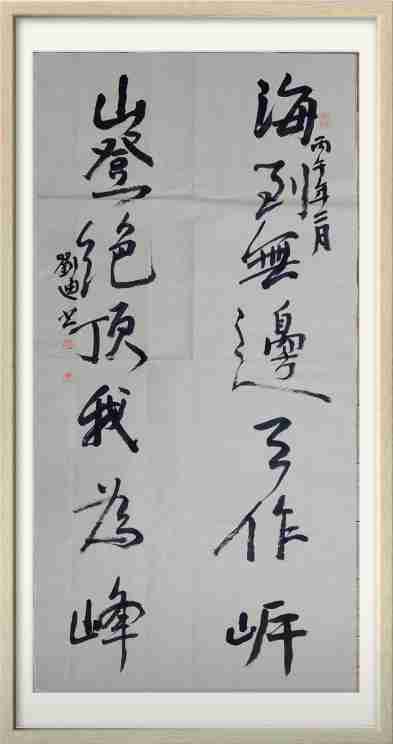 海到無邊天作岸
丙午年二月
山登絕頂我為峰
劉迪書